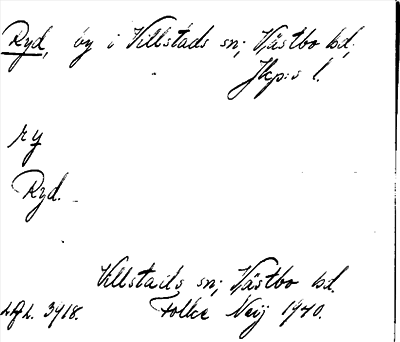 Ryd, by i Villstads sn; Västbo hd;
Jkp:s l.
ry
Ryd.
Villstads sn; Västbo hd.
3918. Folke Neij 1940.